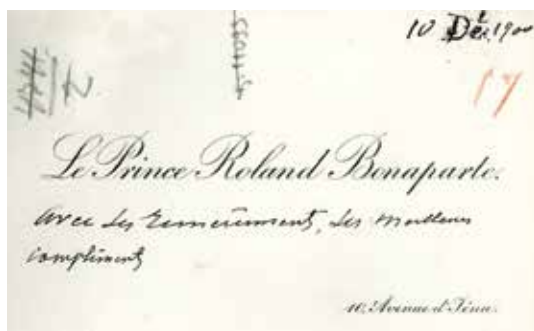 10 Déc. 1900
17
Le Prince Roland Bonaparte.
avec ses remerciements, ses meilleurs
compliments
10, Avenue d'Iéna.